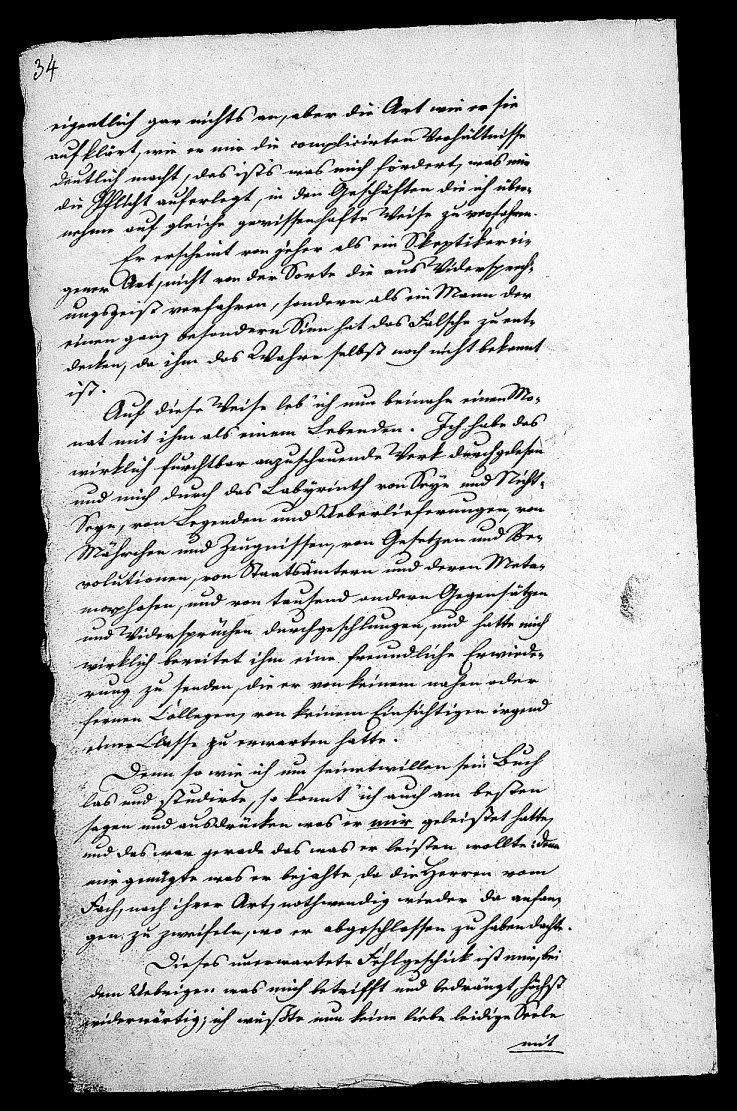 34
eigentlich gar nichts an, aber die Art wie er sie
aufklärt, wie er mir die complicirten Verhältnisse
deutlich macht, das ist's was mich fördert, was mir
die Pflicht auferlegt, in den Geschäften die ich über-
nehme auf gleiche gewissenhafte Weise zu verfahren.
Er erscheint von jeher als ein Skeptiker ei-
gener Art, nicht von der Sorte die aus Widersprech-
ungsgeist verfahren, sondern als ein Mann der
einen ganz besondern Sinn hat das Falsche zu ent-
decken, da ihm das Wahre selbst noch nicht bekannt
ist.
Auf diese Weise leb' ich nun beinahe einen Mo-
nat mit ihm als einem Lebenden. Ich habe das
wirklich furchtbar anzuschauende Werk durchgelesen
und mich durch das Labyrinth von Seyn und Nicht-
Seyn, von Legenden und Ueberlieferungen, von
Mährchen und Zeugnissen, von Gesetzen und Re-
volutionen, von Staatsämtern und deren Meta-
morphosen, und von tausend andern Gegensätzen
und Widersprüchen durchgeschlungen, und hatte mich
wirklich bereitet ihm eine freundliche Erwiede-
rung zu senden, die er von keinem nahen oder
fernen Collegen, von keinem Einsichtigen irgend
einer Classe zu erwarten hatte.
Denn so wie ich um seinetwillen sein Buch
las und studirte, so konnt' ich auch am besten
sagen und ausdrücken was er mir geleistet hatte,
und das war gerade das was er leisten wollte: denn
mir genügte was er bejahte, da die Herren vom
Fach, nach ihrer Art, nothwendig wieder da anfan-
gen zu zweifeln, wo er abgeschlossen zu haben dachte.
Dieses unerwartete Fehlgeschick ist mir, bei
dem Uebrigen was mich betrifft und bedrängt, höchst
widerwärtig; ich wüßte nun keine liebe leidige Seele
mit